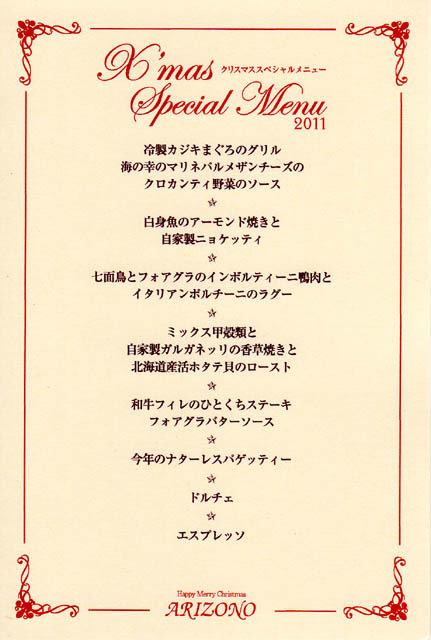 X'mas クリスマススペシャルメニュー
Special Menu
2011
冷製カジキまぐろのグリル
海の幸のマリネパルメザンチーズの
クロカンティ野菜のソース
☆
白身魚のアーモンド焼きと
自家製ニョケッティ
☆
七面鳥とフォアグラのインボルティーニ鴨肉と
イタリアンポルチーニのラグー
☆
ミックス甲殻類と
自家製ガルガネッリの香草焼きと
北海道産活ホタテ貝のロースト
☆
和牛フィレのひとくちステーキ
フォアグラバターソース
☆
今年のナターレスパゲッティー
☆
ドルチェ
☆
エスプレッソ
Happy Merry Christmas
ARIZONO